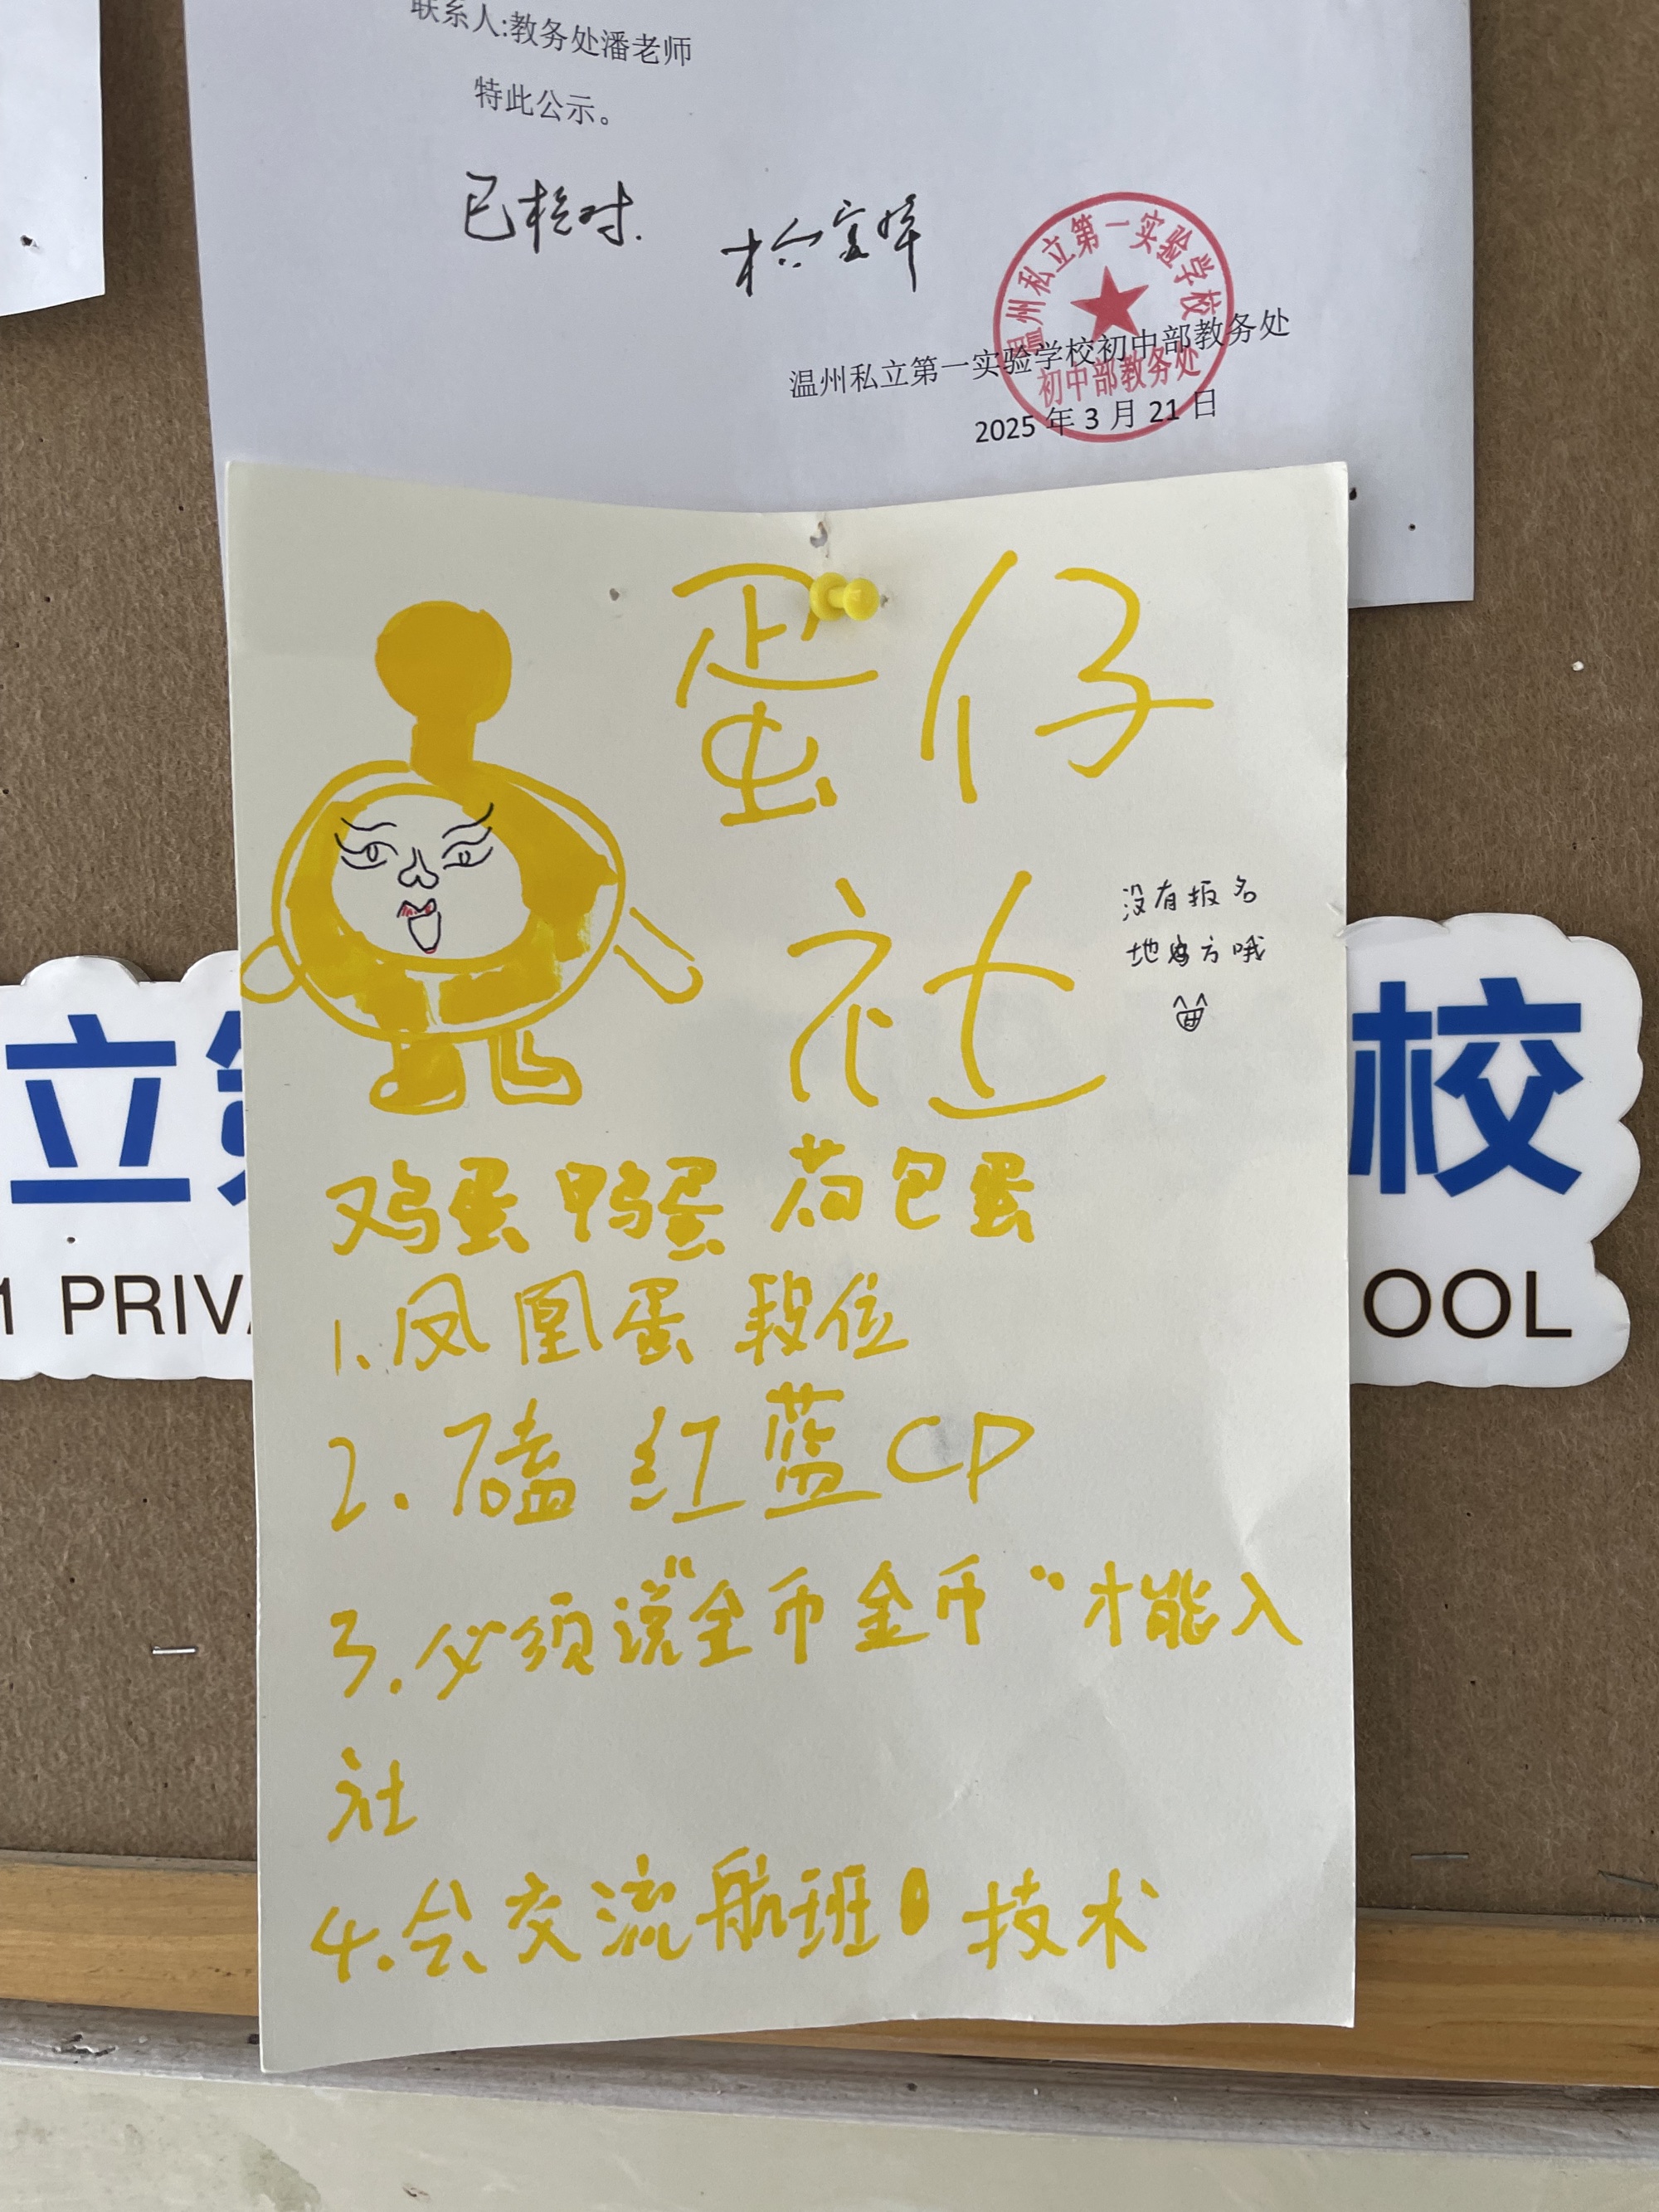 联系人:教务处潘老师
特此公示。
已核对.
温州私立第一实验学校
初中部教务处
温州私立第一实验学校初中部教务处
2025 年 3 月 21 日
蛋仔
社
没有报名
地方哦
立第
校
1 PRIVA
OOL
鸡蛋 鸭蛋 荷包蛋
1.凤凰蛋 段位
2.磕红蓝CP
3.必须说"金币金币"才能入
社
4.会交流航班 技术